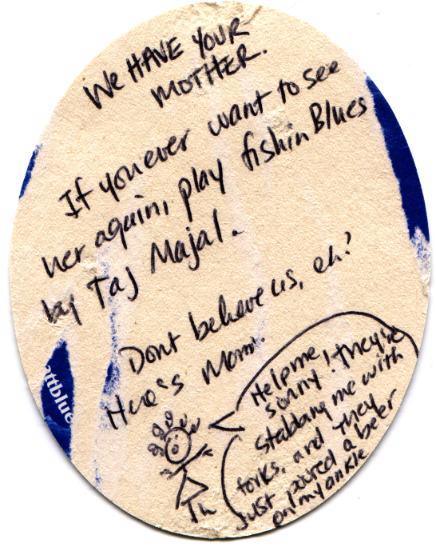 WE HAVE YOUR
MOTHER.
If you ever want to see
her again, play fishin Blues
by Taj Majal.
Dont believe us, eh?
Here's Mom.
Help me
sonny! They're
stabbing me with
forks, and they
just poured a beer
on my ankle
attblue